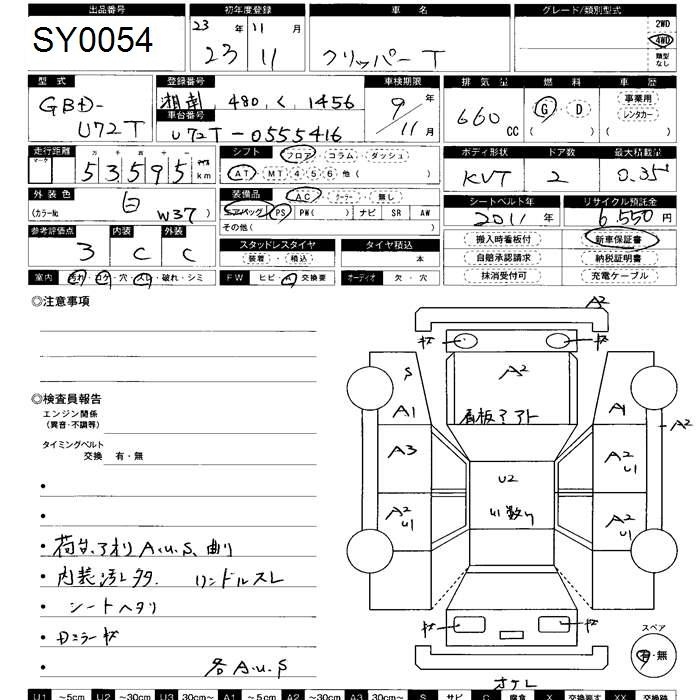 出品番号 初年度登録 車名 グレード/類別型式
SY0054 23年 11月 2WD
23 11 クリッパー T 4WD
類型なし
型式 登録番号 車検期限 排気量 燃料 車歴
GBD-U72T 湘南 480 く 1456 9年 11月 660CC G・D ( ) 事業用 レンタカー ( )
車台番号
U72T-0555416
走行距離 シフト フロア・コラム・ダッシュ ボディ形状 ドア数 最大積載量
マーク 十万千百十 53595 km AT・MT 4・5・6・他( ) KVT 2 0.35t
外装色 装備品 AC・クーラー・無し シートベルト年 リサイクル預託金
(カラーNo. 白 W37) エアバッグ PS PW( ) ナビ SR AW 2011年 6,550円
その他( )
参考評価点 内装 外装 スタッドレスタイヤ タイヤ積込 搬入時看板付 新車保証書
3 C C (装着)・(積込) 本 自賠承認請求 納税証明書
室内 汚れ・コゲ・穴・スレ・破れ・シミ FW ヒビ・A・交換要 オーディオ 欠・穴 抹消受付可 充電ケーブル
◎注意事項
A2
キズ キズ
S A2
A1 看板アト A1 A2
◎検査員報告
エンジン関係
(異音・不調等)
タイミングベルト
交換 有・無
A3 U2 A2 U1
A2 U1 U1数リ A2 U1
・荷台、アオリ A.U.S、曲り
・内装汚レ多 ハンドルスレ
・シートヘタリ
・Dミラーキズ
各A.U.S
キズ キズ
スペア
有・無
オケレ
U1 ~5cm U2 ~30cm U3 30cm~ A1 ~5cm A2 ~30cm A3 30cm~ S サビ C 腐食 X 交換要す XX 交換跡